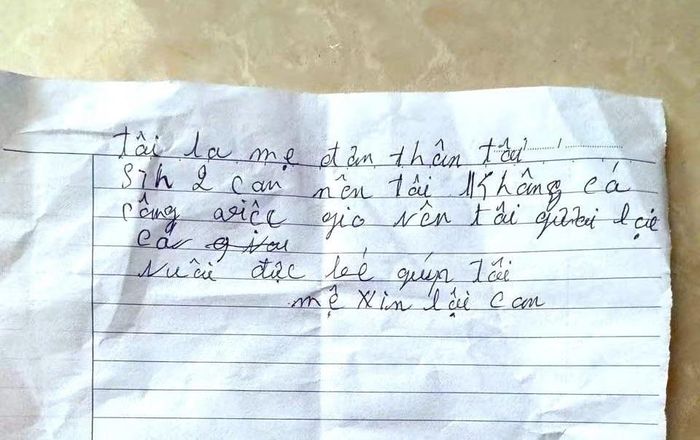 tôi la mẹ đơn thân tôi
Sih 2 con nên tôi không có
công việc gio nên tôi gửi lại
có
nuôi được bé giúp tôi
mẹ xin lỗi con